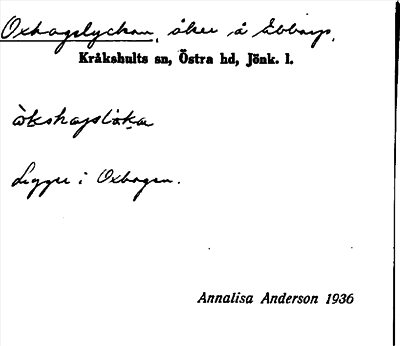 Oxhagslyckan, åker å Ebbarp,
Kråkshults sn, Östra hd, Jönk. l.
òkshagslə̀kɑ
Ligger i Oxhagen.
Annalisa Anderson 1936